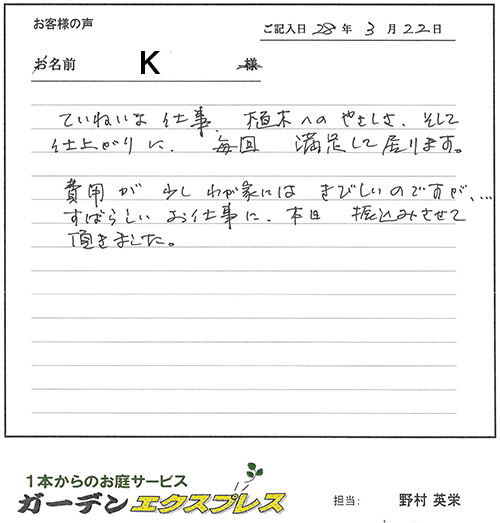 お客様の声
ご記入日 28 年 3 月 22 日
お名前 K 様
ていねいな仕事、植木へのやさしさ、そして
仕上がりに、毎回 満足して居ります。
費用が 少し わが家には きびしいのですが、…
すばらしい お仕事に、本日 振込みさせて
頂きました。
1本からのお庭サービス
ガーデンエクスプレス
担当: 野村 英栄